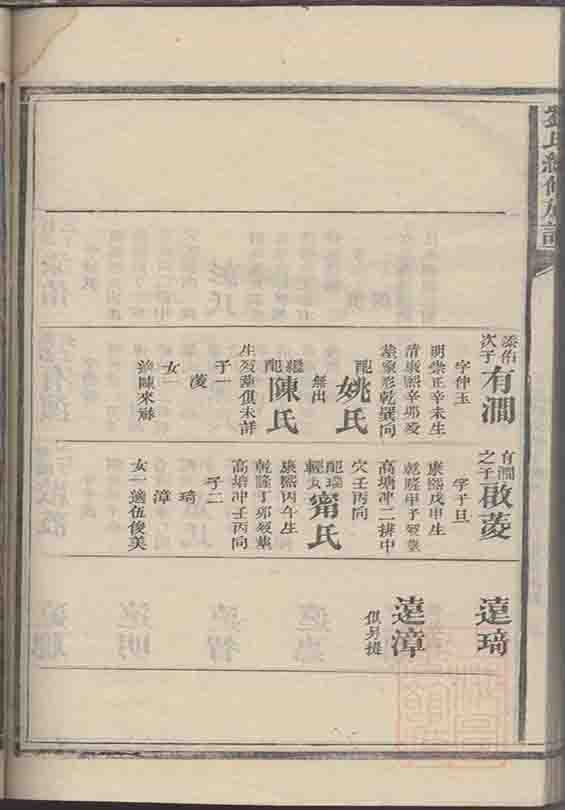 劉氏續修族譜
添佑
次子
有澗
字仲玉
明崇正辛未生
清康熙辛卯歿
葬家彭乾巽向
配
姚氏
無出
繼
配
陳氏
生歿葬俱未詳
子一
女一
適陳來
有澗
之子
啟菱
字子旦
康熙戊申生
乾隆甲子歿葬
高塘冲二排中
穴壬丙向
配
甯氏
康熙丙午生
乾隆丁卯歿葬
高塘冲壬丙向
子二
琦
漳
女一適伍俊美
遠琦
遠漳
俱另提